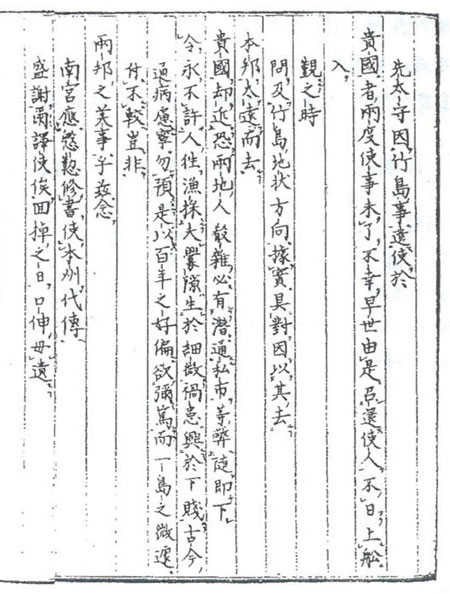 先太守因竹島事遣使於
貴國者兩度使事未了不幸早世由是召還使人不日上舩
入
覲之時
問及竹島地状方向據實具對因以其去
本邦太遠而去
貴國却近恐兩地人殽雜必有潜通私市等弊随即下
令永不許人往漁採夫釁隙生於細微禍患興於下賤古今
通病慮寧勿預是以百年之好偏欲彌篤而一島之微遽
付不較豈非
兩邦之美事乎茲念
南宮應慇懃修書使本州代傳
盛謝爾譯使俟回棹之日口伸毋遺